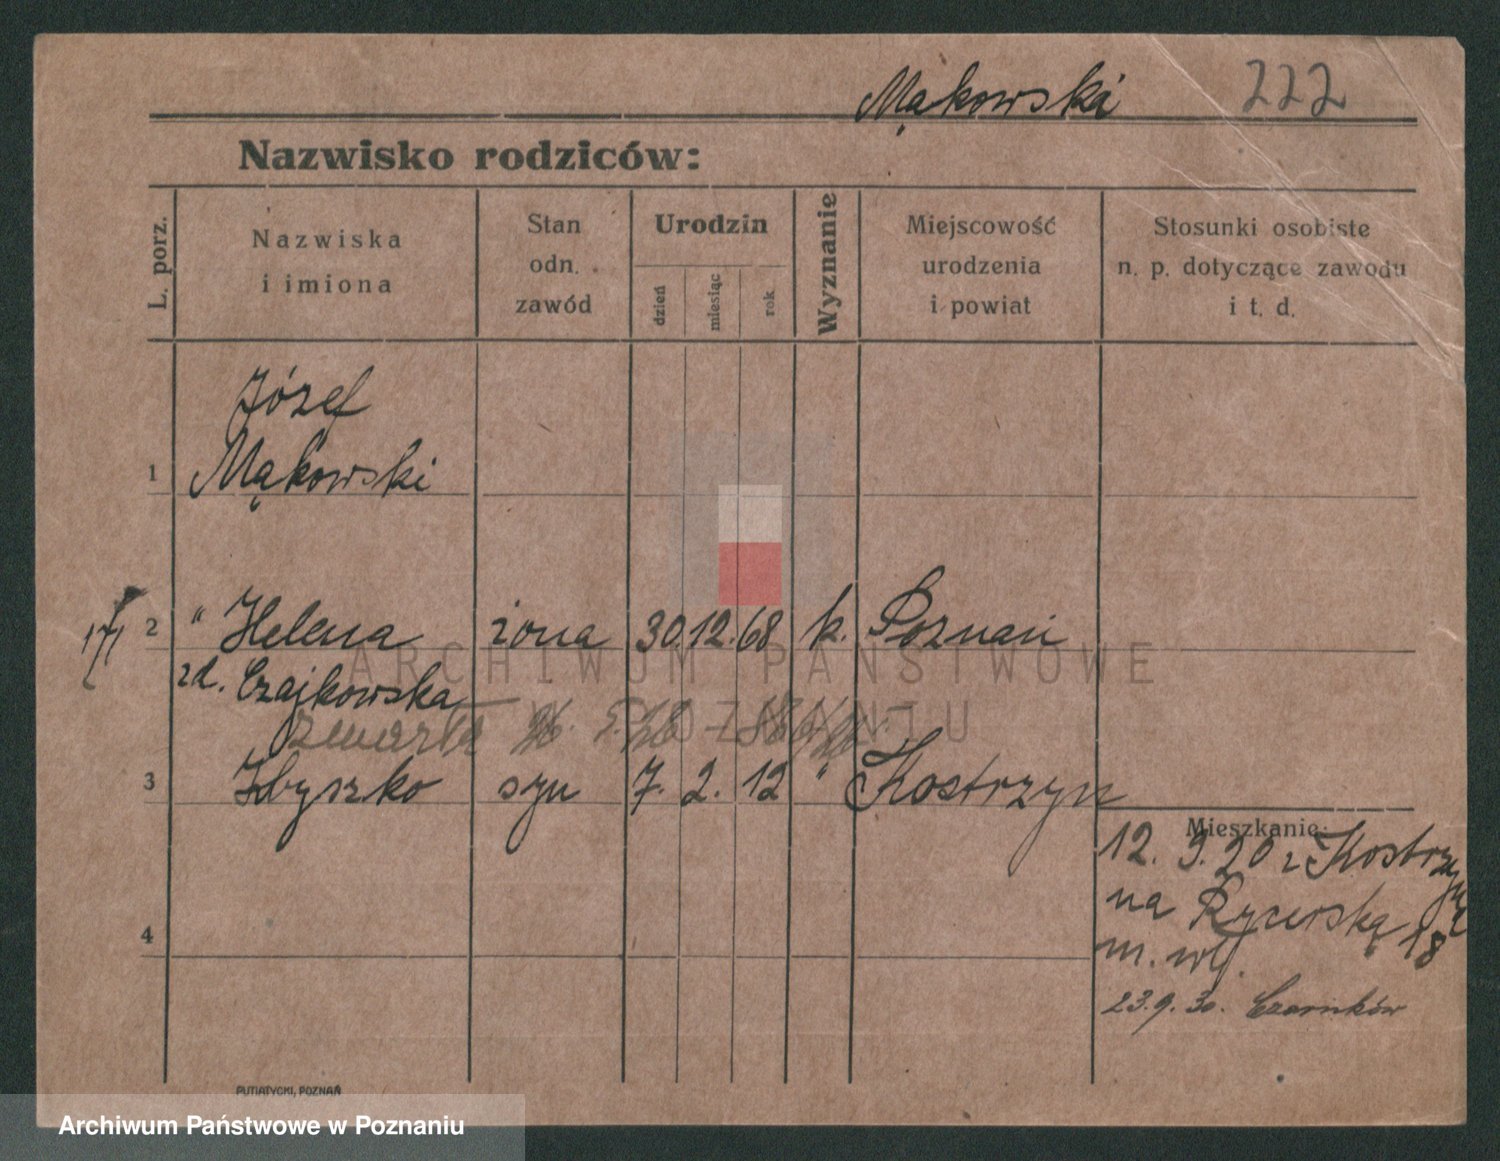 Mąkowski 222
Nazwisko rodziców:
L. porz.
Nazwiska
i imiona
Stan
odn.
zawód
Urodzin
dzień
miesiąc
rok
Wyznanie
Miejscowość
urodzenia
i powiat
Stosunki osobiste
n. p. dotyczące zawodu
i t. d.
Józef
1 Mąkowski
2 " Helena żona 30. 12. 68 k. Poznań
zd. Czajkowska
ARCHIWUM PAŃSTWOWE
W POZNANIU
zmarła
3 Zbyszko syn 7. 2. 12 " Kostrzyn
Mieszkanie:
12. 9. 20 z Kostrzyna
na Rycerską 18
m. wł.
4
23. 9. 30. Czarnków
PUTIATYCKI, POZNAŃ
Archiwum Państwowe w Poznaniu